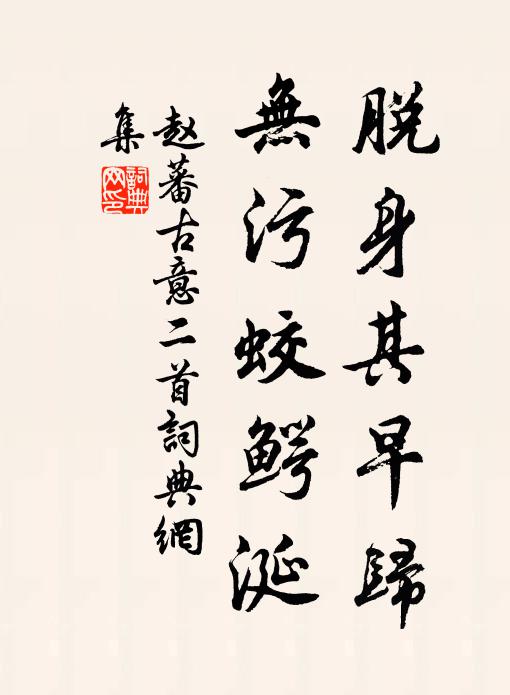 脱身其早歸
無污蛟鳄涎
赵蕃古意二首詞典網
集
詞典
网印